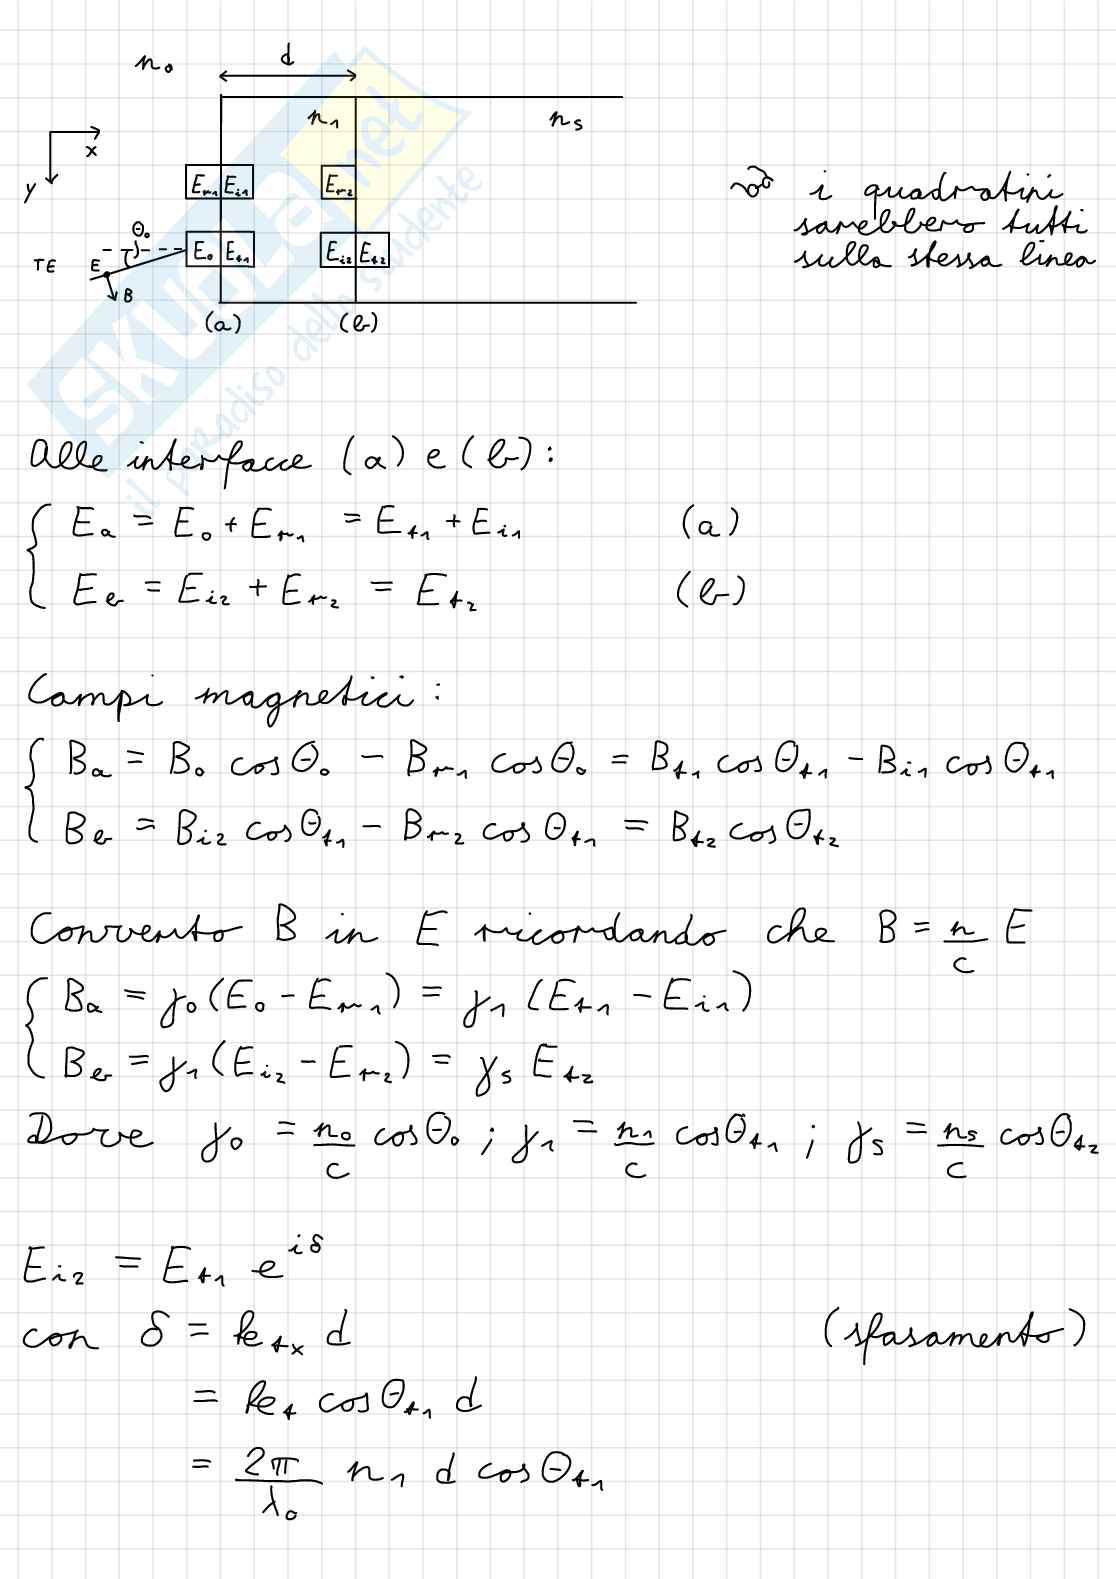 n₀
d
n₁
nₛ
x
y
E_{r1} E_{i1}
E_{r2}
θ₀
E₀ E_{t1}
E_{i2} E_{t2}
TE
E
B
(a)
(b)
i quadratini
sarebbero tutti
sulla stessa linea
SKUOLA.net
il paradiso dello studente
Alle interfacce (a) e (b):
E_a = E₀ + E_{r1} = E_{t1} + E_{i1} (a)
E_b = E_{i2} + E_{r2} = E_{t2} (b)
Campi magnetici:
B_a = B₀ cosθ₀ − B_{r1} cosθ₀ = B_{t1} cosθ_{t1} − B_{i1} cosθ_{t1}
B_b = B_{i2} cosθ_{t1} − B_{r2} cosθ_{t1} = B_{t2} cosθ_{t2}
Converto B in E ricordando che B = n/c E
B_a = γ₀(E₀ − E_{r1}) = γ₁ (E_{t1} − E_{i1})
B_b = γ₁(E_{i2} − E_{r2}) = γₛ E_{t2}
Dove γ₀ = n₀/c cosθ₀ ; γ₁ = n₁/c cosθ_{t1} ; γₛ = nₛ/c cosθ_{t2}
E_{i2} = E_{t1} e^{iδ}
con δ = k_{tx} d (sfasamento)
= k_t cosθ_{t1} d
= 2π/λ₀ n₁ d cosθ_{t1}